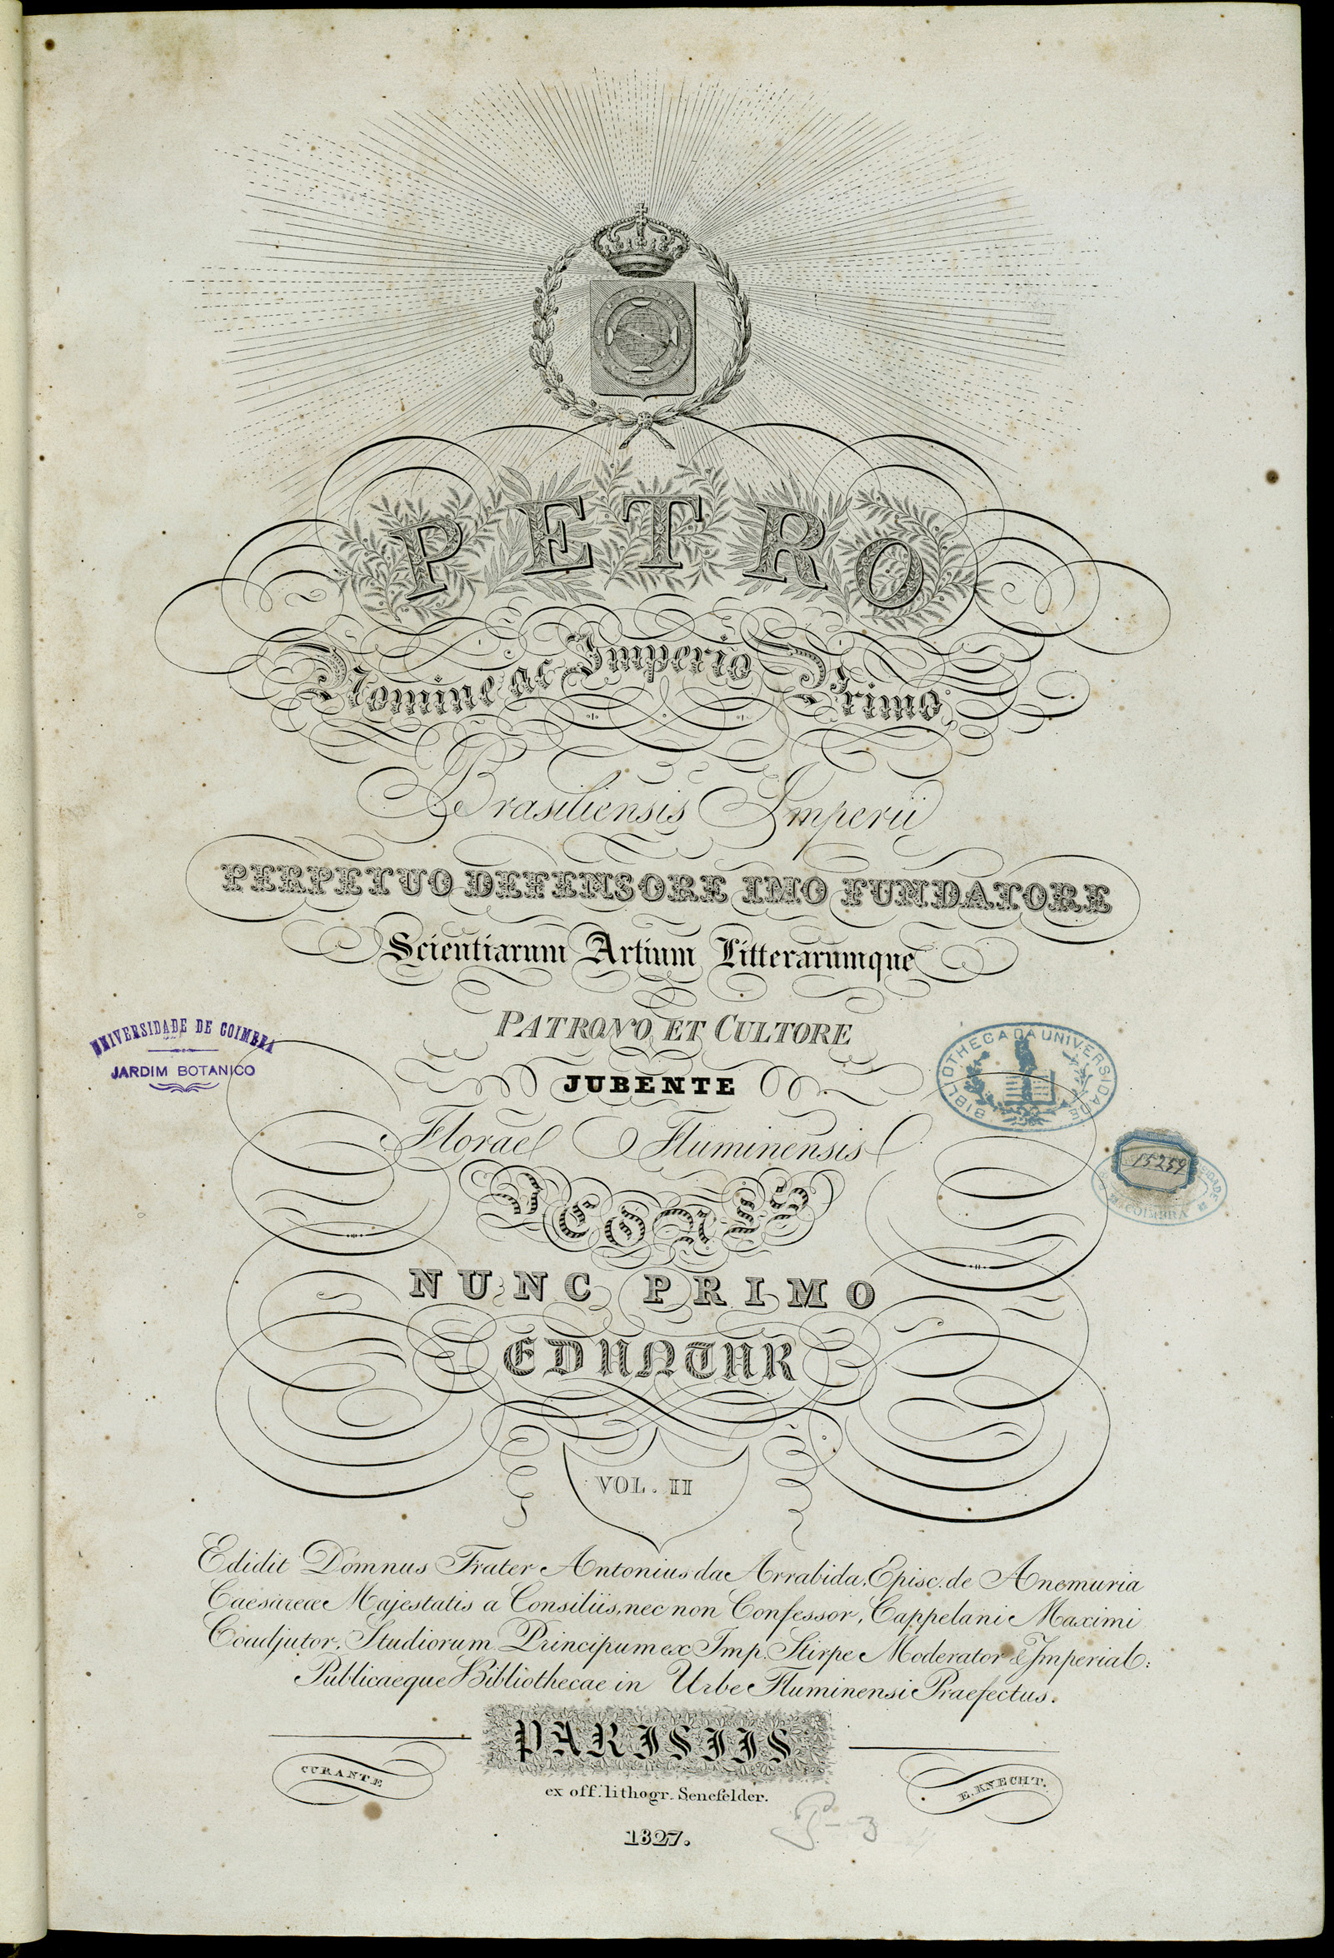 PETRO
Nomine ac Imperio Primo;
Brasiliensis Imperii
PERPETUO DEFENSORE IMO FUNDATORE
Scientiarum Artium Litterarumque
PATRONO ET CULTORE
JUBENTE
Florae Fluminensis
ICONES
NUNC PRIMO
EDUNTUR
VOL. II
Edidit Domnus Frater Antonius da Arrabida, Episc. de Anemuria
Caesareae Majestatis a Consiliis, nec non Confessor, Cappelani Maximi
Coadjutor, Studiorum Principum ex Imp. Stirpe Moderator & Imperial:
Publicaeque Bibliothecae in Urbe Fluminensi Praefectus.
PARISIIS
CURANTE
E. KNECHT.
ex off. lithogr. Senefelder.
1827.
UNIVERSIDADE DE COIMBRA
JARDIM BOTANICO
BIBLIOTHECA DA UNIVERSIDADE
15259
COIMBRA